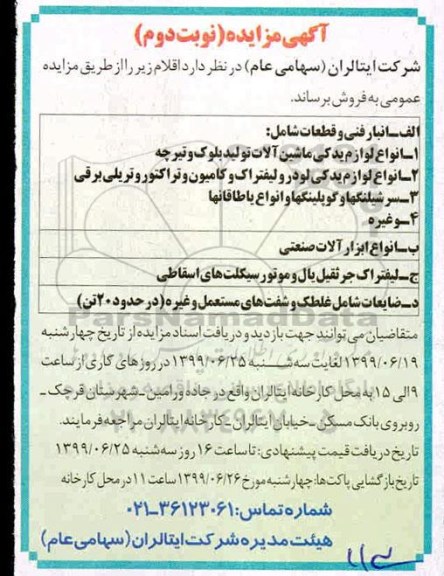 آگهی مزایده (نوبت دوم)
شرکت ایتالران (سهامی عام) در نظر دارد اقلام زیر را از طریق مزایده
عمومی به فروش برساند.
الف_انبار فنی و قطعات شامل:
۱_انواع لوازم یدکی ماشین آلات تولید بلوک و تیرچه
۲_انواع لوازم یدکی لودر و لیفتراک و کامیون و تراکتور و تریلی برقی
۳_سرشیلنگها و کوپلینگها و انواع یاطاقانها
۴_و غیره
ب_انواع ابزارآلات صنعتی
ج_لیفتراک جرثقیل یال و موتورسیکلت های اسقاطی
د_ضایعات شامل غلطک و شفت های مستعمل و غیره (در حدود ۲۰ تن)
متقاضیان می توانند جهت بازدید و دریافت اسناد مزایده از تاریخ چهارشنبه
۱۳۹۹/۰۶/۱۹ لغایت سه شنبه ۱۳۹۹/۰۶/۲۵ در روزهای کاری از ساعت
۹ الی ۱۵ به محل کارخانه ایتالران واقع در جاده ورامین_شهرستان قرچک_
روبروی بانک مسکن_خیابان ایتالران_کارخانه ایتالران مراجعه فرمایند.
تاریخ دریافت قیمت پیشنهادی: تا ساعت ۱۶ روز سه شنبه ۱۳۹۹/۰۶/۲۵
تاریخ بازگشایی پاکت ها: چهارشنبه مورخ ۱۳۹۹/۰۶/۲۶ ساعت ۱۱ در محل کارخانه
شماره تماس: ۳۶۱۲۳۰۶۱_۰۲۱
هیئت مدیره شرکت ایتالران (سهامی عام)